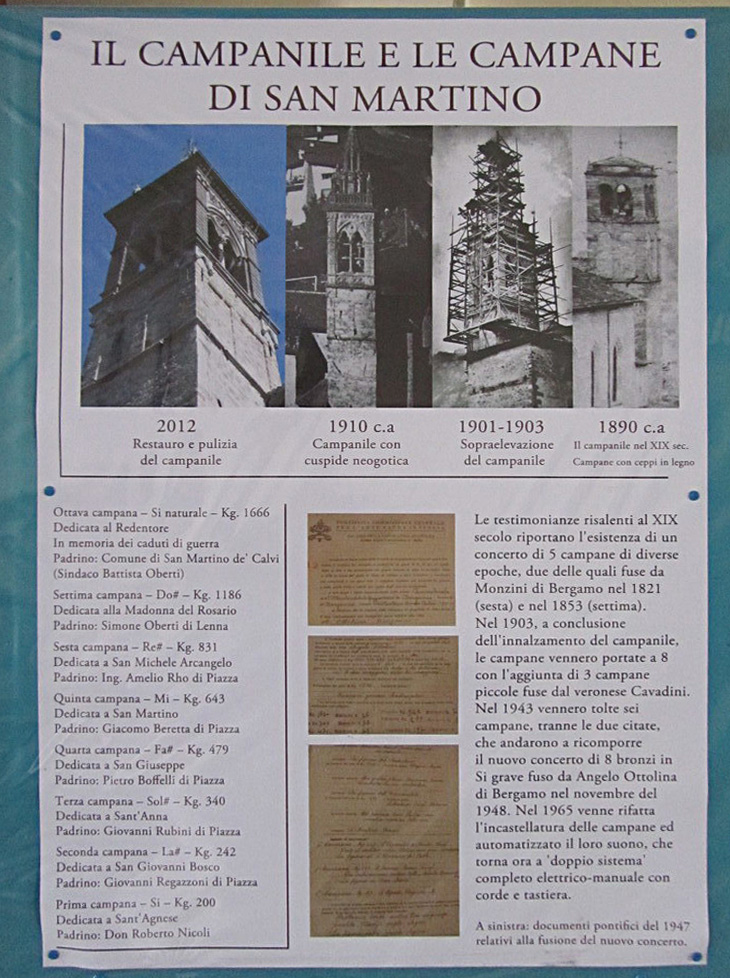 IL CAMPANILE E LE CAMPANE
DI SAN MARTINO
2012
Restauro e pulizia
del campanile
1910 c.a
Campanile con
cuspide neogotica
1901-1903
Sopraelevazione
del campanile
1890 c.a
Il campanile nel XIX sec.
Campane con ceppi in legno
Ottava campana – Si naturale – Kg. 1666
Dedicata al Redentore
In memoria dei caduti di guerra
Padrino: Comune di San Martino de' Calvi
(Sindaco Battista Oberti)
Settima campana – Do# – Kg. 1186
Dedicata alla Madonna del Rosario
Padrino: Simone Oberti di Lenna
Sesta campana – Re# – Kg. 831
Dedicata a San Michele Arcangelo
Padrino: Ing. Amelio Rho di Piazza
Quinta campana – Mi – Kg. 643
Dedicata a San Martino
Padrino: Giacomo Beretta di Piazza
Quarta campana – Fa# – Kg. 479
Dedicata a San Giuseppe
Padrino: Pietro Boffelli di Piazza
Terza campana – Sol# – Kg. 340
Dedicata a Sant'Anna
Padrino: Giovanni Rubini di Piazza
Seconda campana – La# – Kg. 242
Dedicata a San Giovanni Bosco
Padrino: Giovanni Regazzoni di Piazza
Prima campana – Si – Kg. 200
Dedicata a Sant'Agnese
Padrino: Don Roberto Nicoli
Le testimonianze risalenti al XIX
secolo riportano l'esistenza di un
concerto di 5 campane di diverse
epoche, due delle quali fuse da
Monzini di Bergamo nel 1821
(sesta) e nel 1853 (settima).
Nel 1903, a conclusione
dell'innalzamento del campanile,
le campane vennero portate a 8
con l'aggiunta di 3 campane
piccole fuse dal veronese Cavadini.
Nel 1943 vennero tolte sei
campane, tranne le due citate,
che andarono a ricomporre
il nuovo concerto di 8 bronzi in
Si grave fuso da Angelo Ottolina
di Bergamo nel novembre del
1948. Nel 1965 venne rifatta
l'incastellatura delle campane ed
automatizzato il loro suono, che
torna ora a 'doppio sistema'
completo elettrico-manuale con
corde e tastiera.
A sinistra: documenti pontifici del 1947
relativi alla fusione del nuovo concerto.